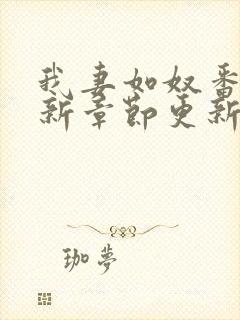 我妻如奴番
新章节更新
珈梦